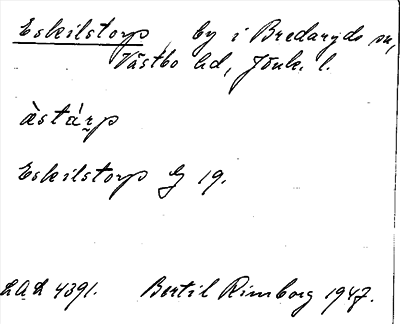 Eskilstorp by i Bredaryds sn,
Västbo hd, Jönk. l.
àstár̰p
Eskilstorp G 19.
LAL 4391. Bertil Rimborg 1947.